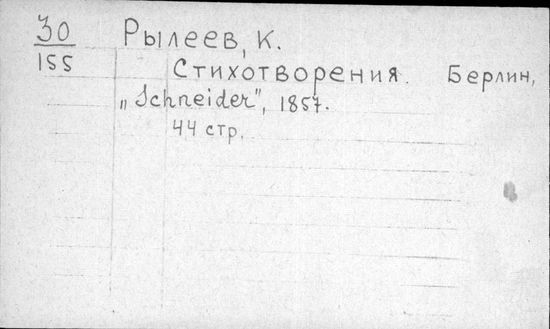 30 Рылеев, К.
155
Стихотворения. Берлин,
„Schneider", 1857.
44 стр.